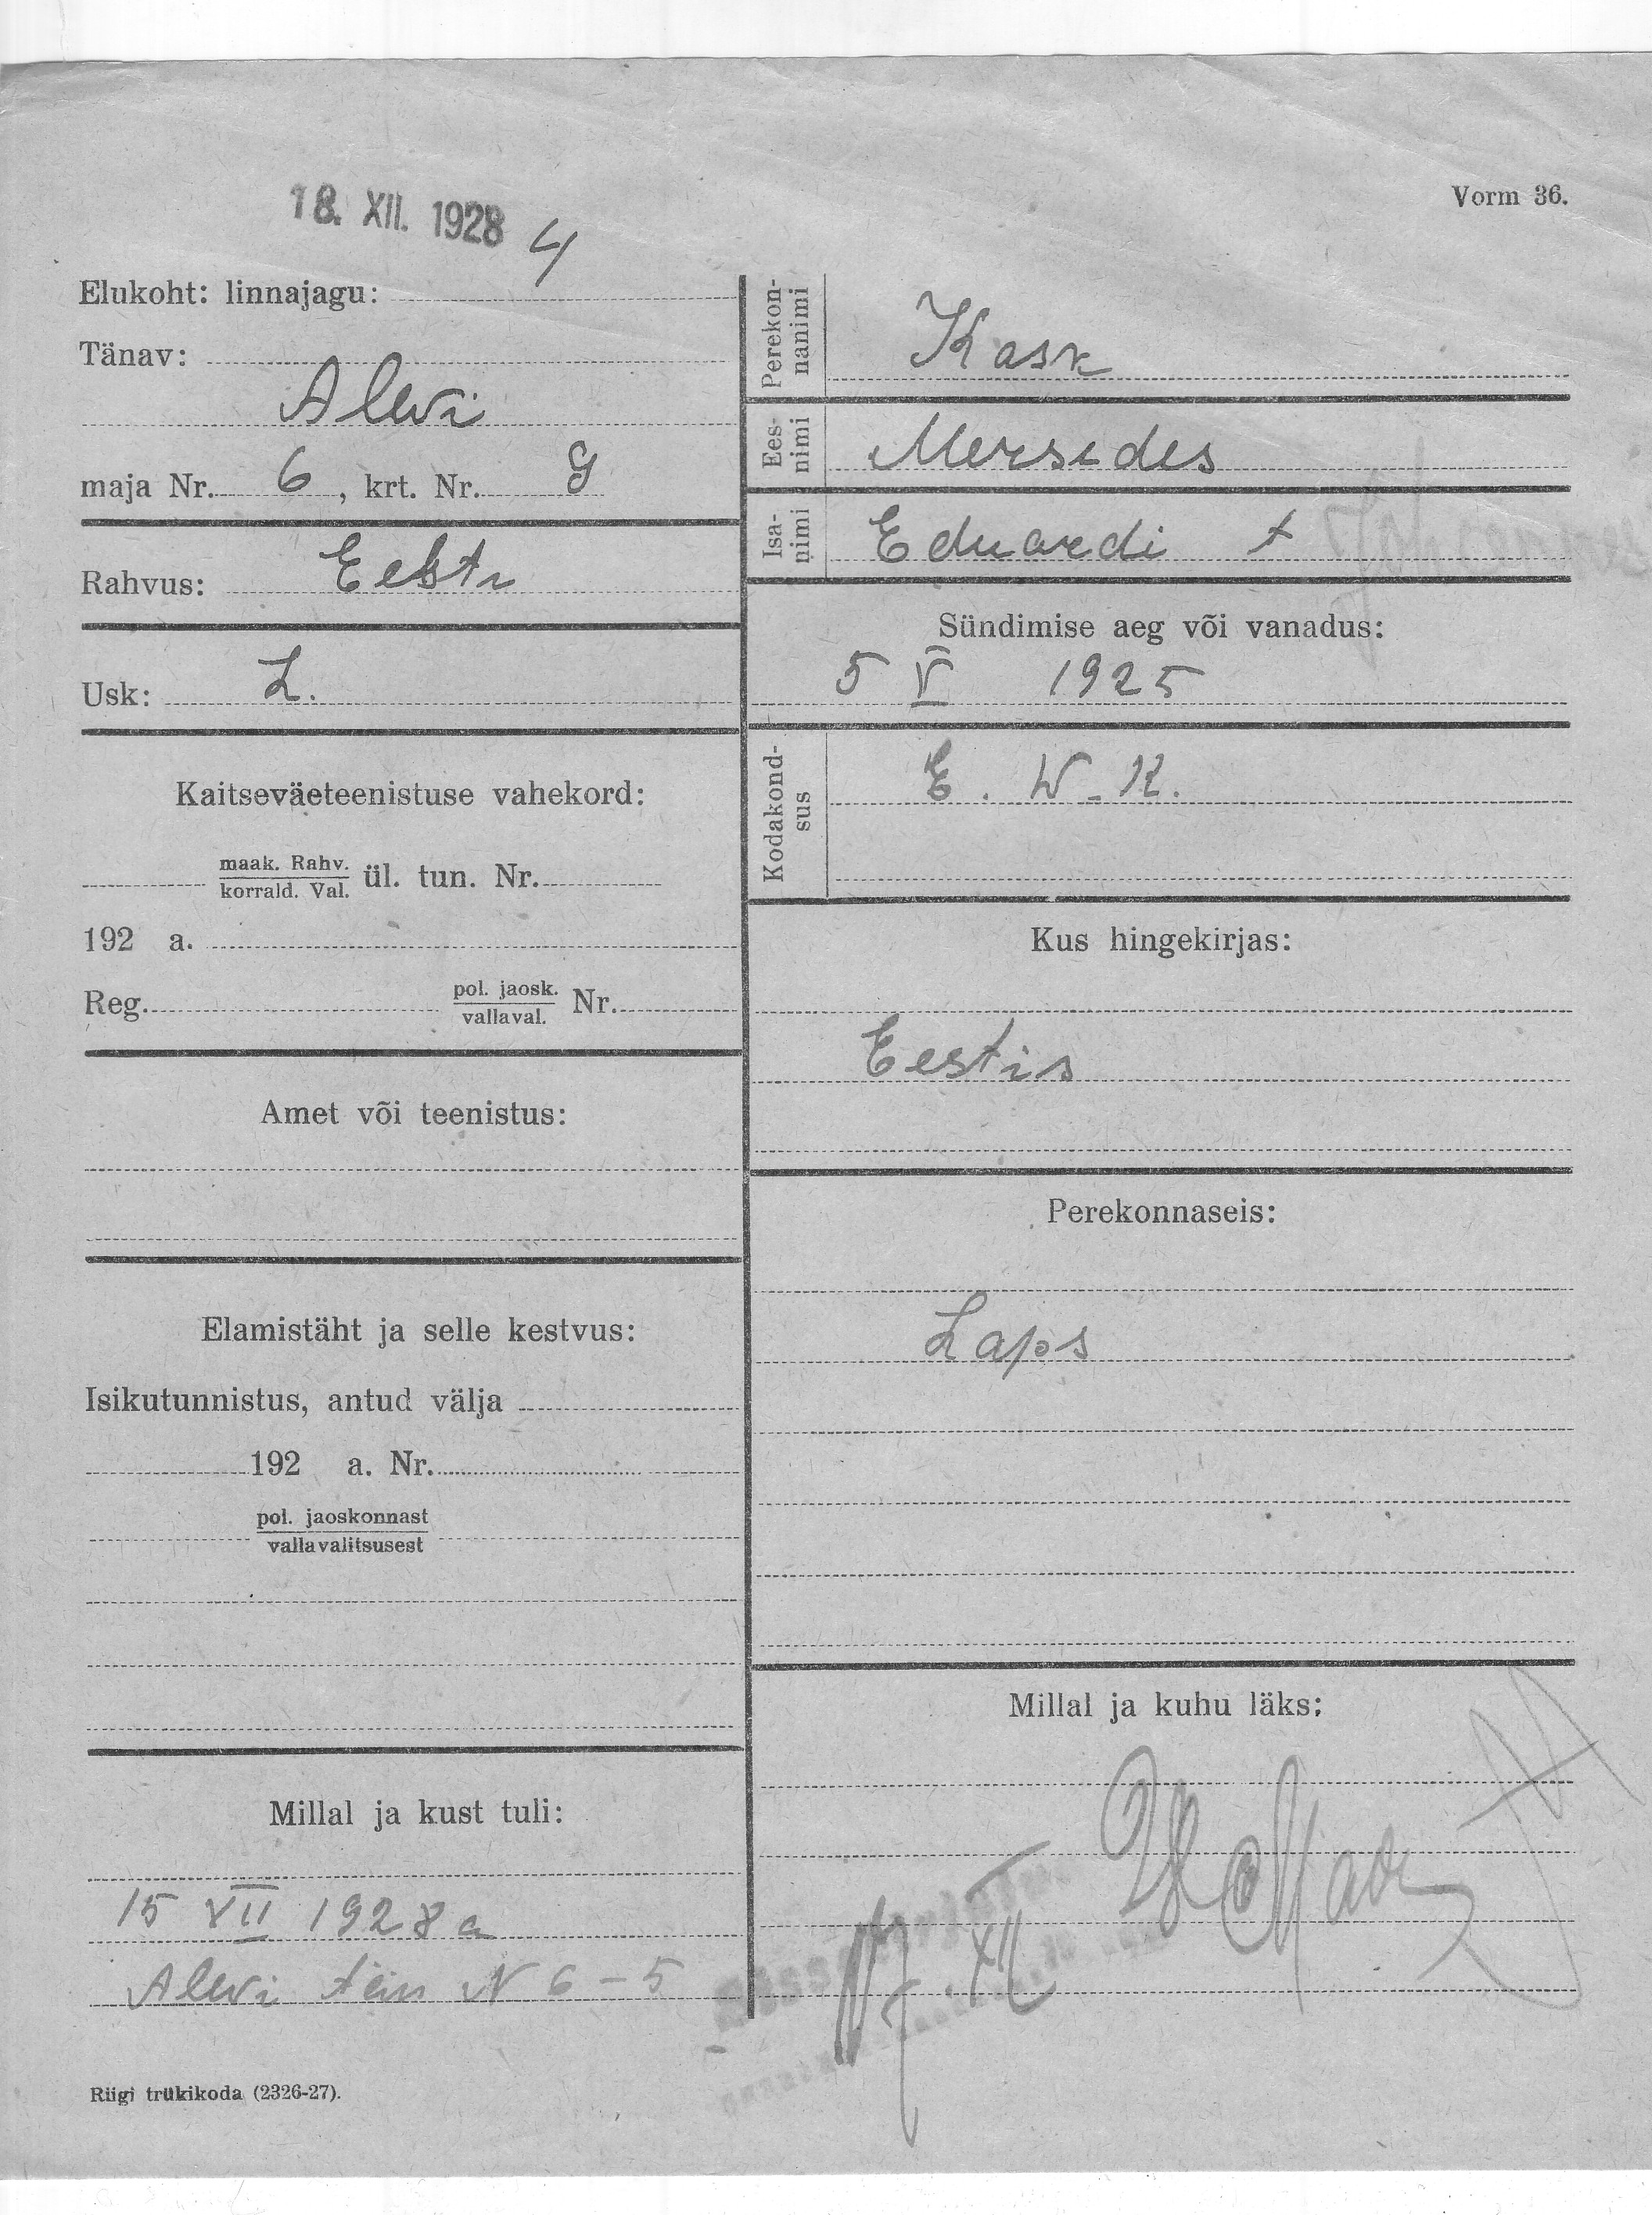 18. XII. 1928
4
Vorm 36.
Elukoht: linnajagu:
Tänav:
Alevi
maja Nr. 6, krt. Nr. 9
Rahvus: Eesti
Usk: L.
Kaitseväeteenistuse vahekord:
maak. Rahv.
korrald. Val.
ül. tun. Nr.
192 a.
Reg. pol. jaosk. Nr.
vallaval.
Amet või teenistus:
Elamistäht ja selle kestvus:
Isikutunnistus, antud välja
192 a. Nr.
pol. jaoskonnast
vallavalitsusest
Millal ja kust tuli:
15 XII 1928 a
Alevi tän N 6-5
Riigi trükikoda (2326-27).
Perekon-
nanimi
Kask
Ees-
nimi
Mersedes
Isa-
nimi
Eduardi t
Sündimise aeg või vanadus:
5 V 1925
Kodakond-
sus
E. W. K.
Kus hingekirjas:
Eestis
Perekonnaseis:
Laps
Millal ja kuhu läks:
XII